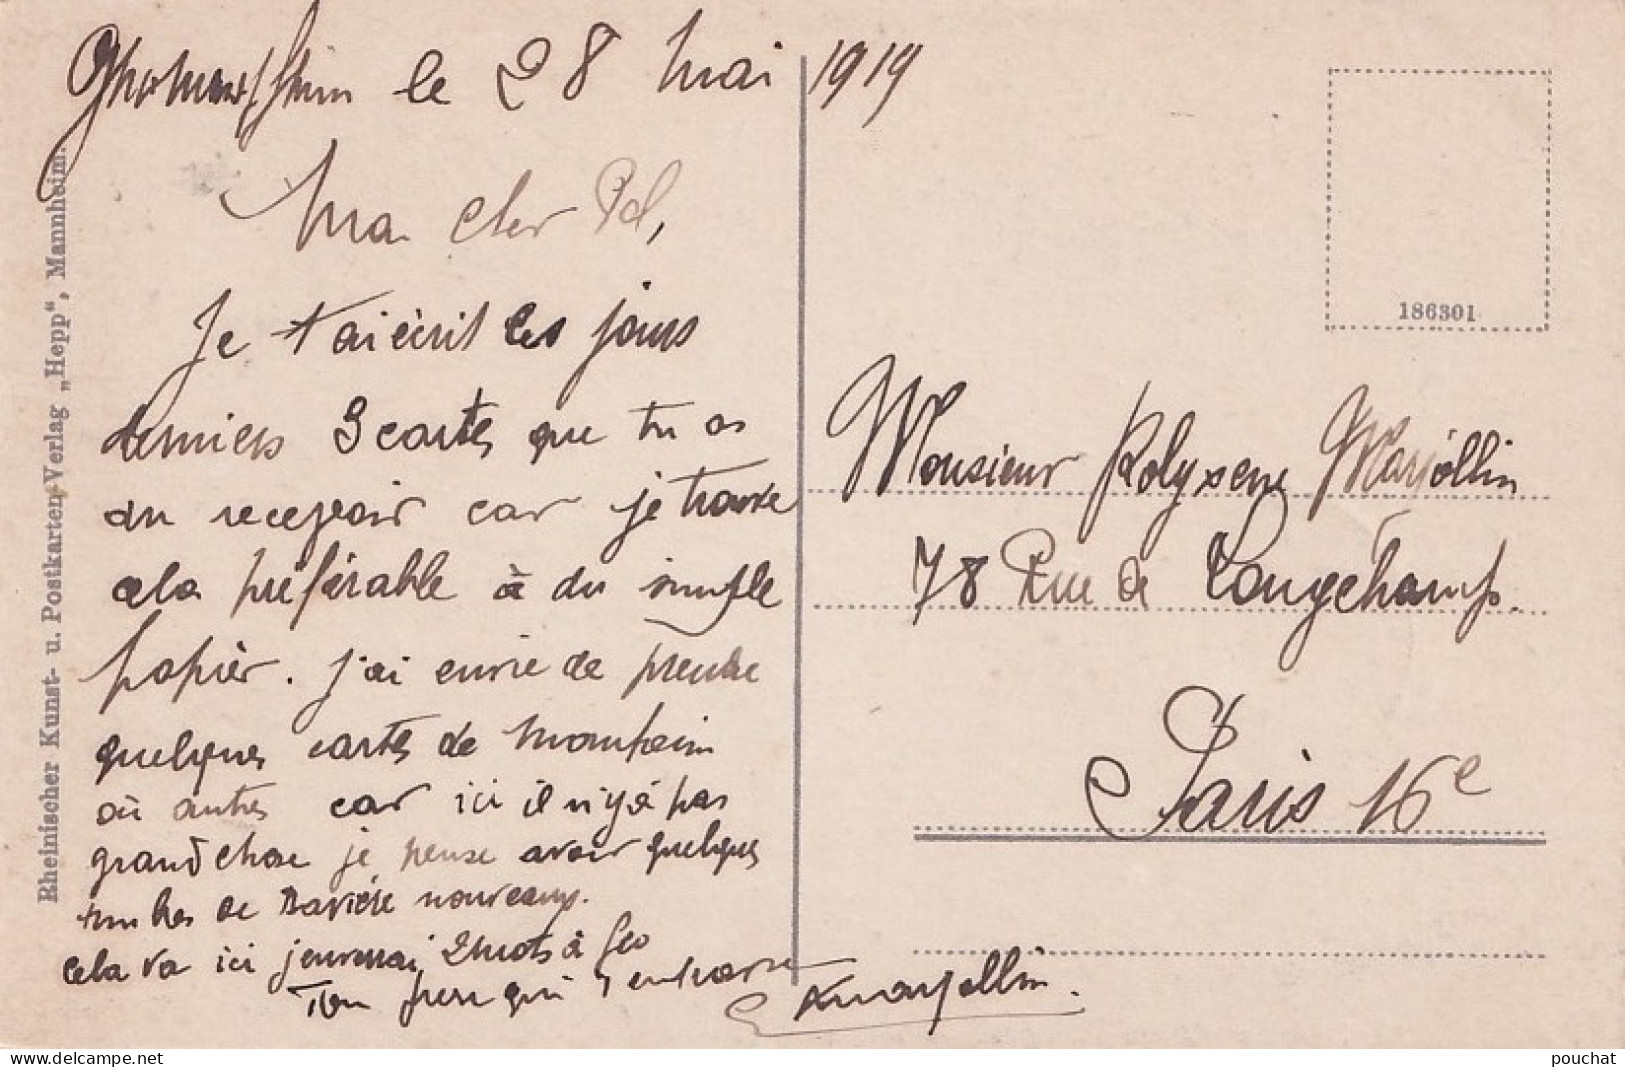 le 28 Mai 1919
Mon cher Pol,
Je t'ai écrit ces jours
derniers 3 cartes que tu as
du recevoir car je trouve
cela préférable à du simple
papier. j'ai envie de prendre
quelques cartes de Mannheim
où autres car ici il n'y a pas
grand chose je pense avoir quelques
timbres de Bavière nouveaux.
cela va ici j'enverrai 2 mots à Geo
Ton frere qui t'embrasse
Marjollin.
Rheinischer Kunst- u. Postkarten-Verlag „Hepp“, Mannheim.
186301
Monsieur Polyxene Marjollin
78 Rue de Longchamp.
Paris 16e
delcampe.net
pouchat